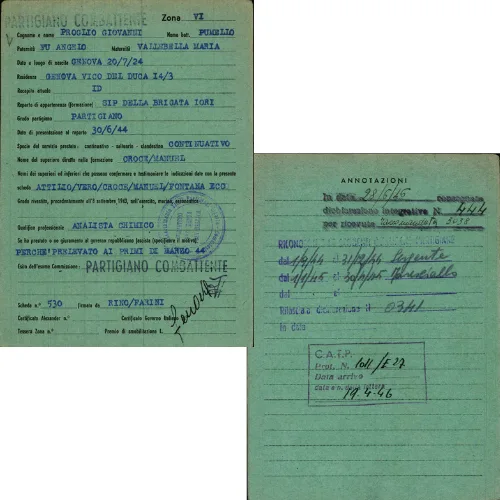 PARTIGIANO COMBATTENTE
Zona VI
Cognome e nome PROGLIO GIOVANNI Nome batt. PUMELLO
Paternità FU ANGELO Maternità VALLEBELLA MARIA
Data e luogo di nascita GENOVA 20/7/24
Residenza GENOVA VICO DEL DUCA 14/3
Recapito attuale ID
Reparto di appartenenza (formazione) SIP DELLA BRIGATA IORI
Grado partigiano PARTIGIANO
Data di presentazione al reparto 30/6/44
Specie del servizio prestato: continuativo - saltuario - clandestino CONTINUATIVO
Nome del superiore diretto nella formazione CROCE/MANUEL
Nomi dei superiori ed inferiori che possono confermare e testimoniare le indicazioni date con la presente
scheda ATTILIO/VERO/CROCE/MANUEL/FONTANA ECC.
Grado rivestito, precedentemente all'8 settembre 1943, nell'esercito, marina, aeronautica
Qualifica professionale ANALISTA CHIMICO
Se ha prestato e se giuramento al governo repubblicano fascista (specificare il motivo)
PERCHE' PRELEVATO AI PRIMI DI MARZO 44
Visto dell'esame Commissione: PARTIGIANO COMBATTENTE
Scheda n.° 530 firmata da RINO/FARINI
Certificato Alexander n.° Certificato Governo Italiano
Tessera Zona n.° Premio di smobilitazione L.
ANNOTAZIONI
In data 28/5/46 consegnata
dichiarazione integrativa N 444
per ricevuta
RICONO
dal 1/9/44 al 31/12/44 Sergente
dal 1/1/45 al 30/4/45 Maresciallo
dal al
Rilasciata dichiarazione n 0341
in data
C.A.T.P.
Prot. N. 1011/E27
Data arrivo
data e n. della lettera
19-4-46